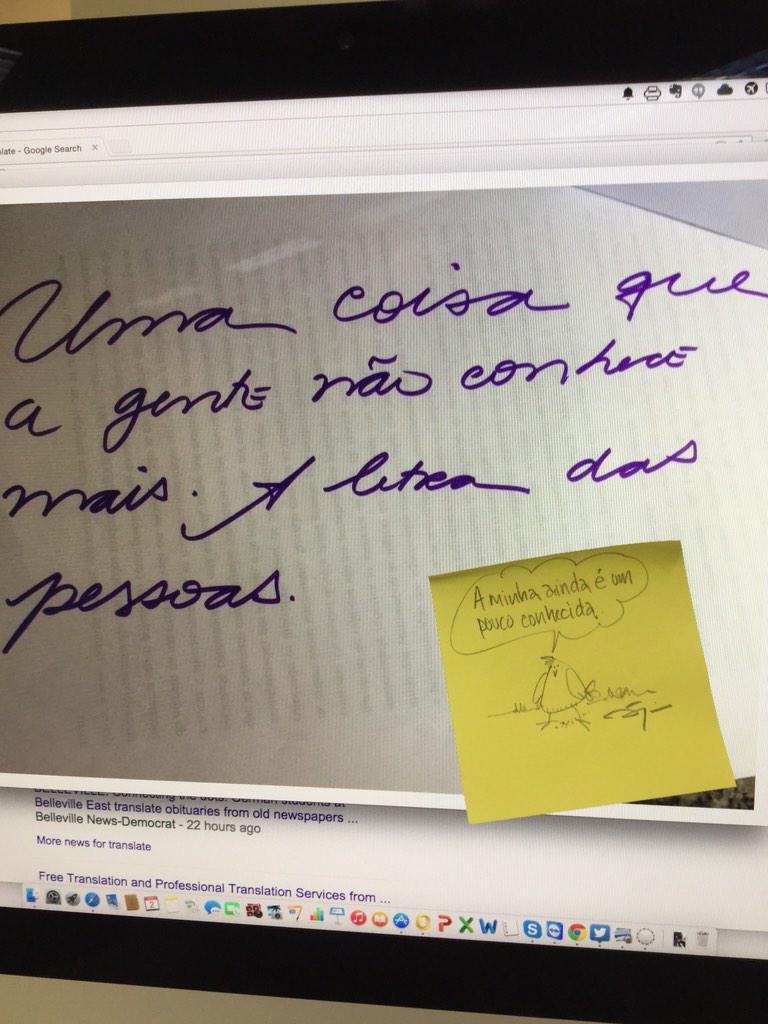 late - Google Search
Uma coisa que
a gente não conhece
mais. A letra das
pessoas.
A minha ainda é um
pouco conhecida.
BELLEVILLE: Connecting the dots: German students at
Belleville East translate obituaries from old newspapers ...
Belleville News-Democrat - 22 hours ago
More news for translate
Free Translation and Professional Translation Services from ...
2